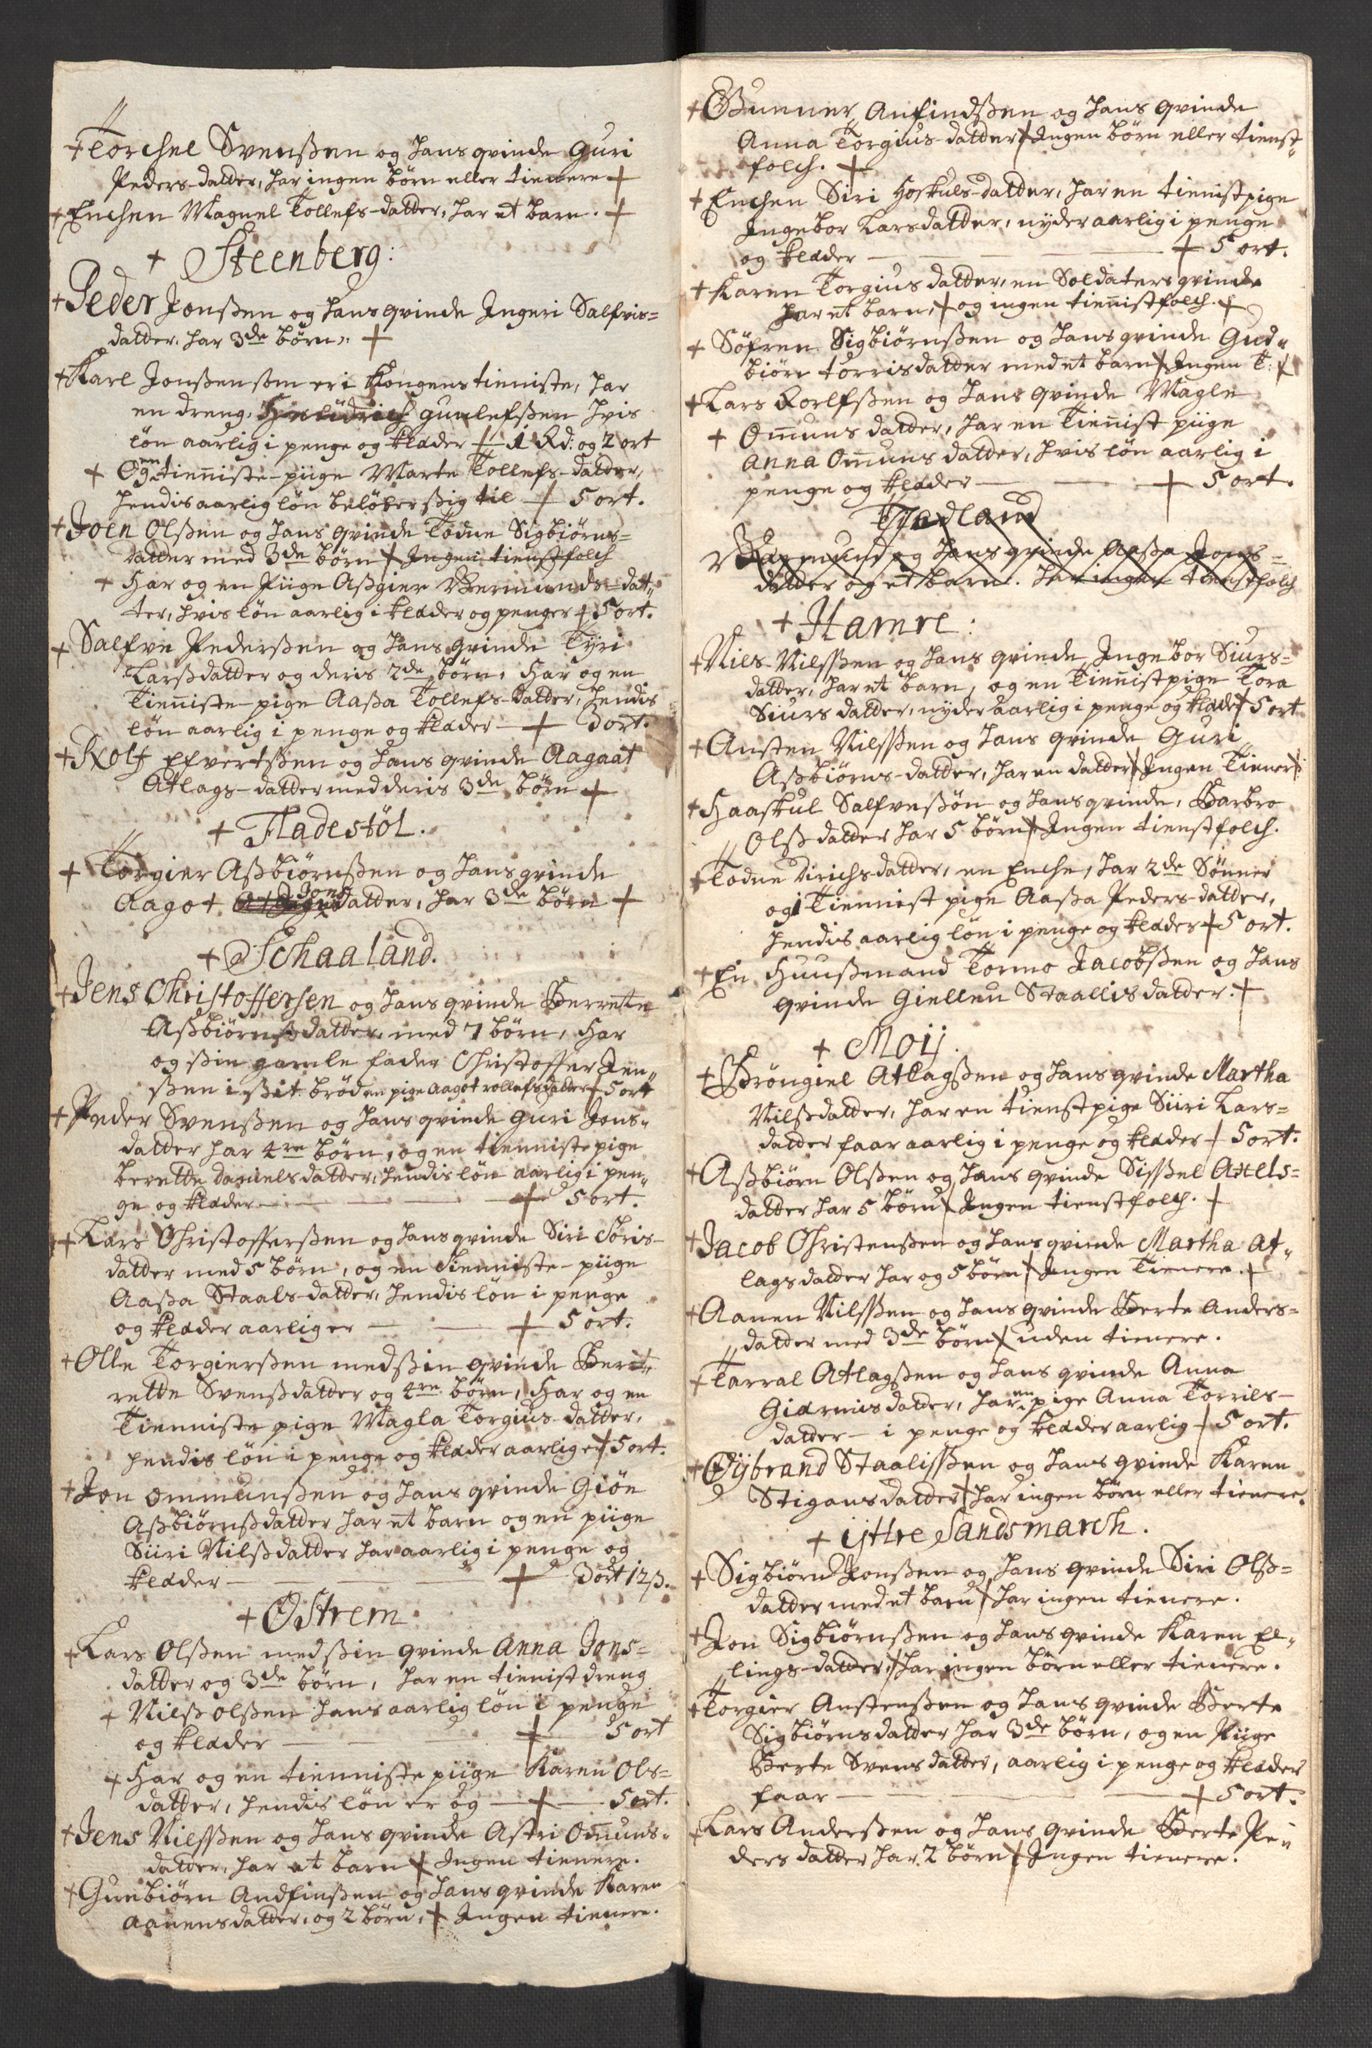 + Torchel Svenßen og hans qvinde Guri
Peders-datter, har ingen børn eller tienere +
+ Enchen Magnel Tollefs-datter, har et barn. +
+ Steenberg:
+ Peder Jonßen og hans qvinde Ingeri Salfvis=
datter, har 3de børn. +
+ Karl Jonßen som er i Kongens tieniste, har
en dreng, gunlefßen hvis
løn aarlig i penge og klæder + 1 Rd: og 2 ort
+ Og en tienniste-piige Marte Tollefs-datter,
hendis aarlig løn beløber sig til + 5 ort.
+ Joen Olßen og hans qvinde Todne Sigbiørns=
datter med 3de børn + Ingen tienstfolch
+ Har og en Piige Aßgier Vermunds-dat=
ter, hvis løn aarlig i klæder og penger + 5 ort.
+ Salfve Pederßen og hans qvinde Tyri
Larßdatter og deris 2de børn, har og en
Tienniste-pige Aaßa Tollefs-datter, hendis
løn aarlig i penge og klæder + 3 ort.
+ Rolf Efvertßen og hans qvinde Aagaat
Atlags-datter med deris 3de børn +
+ Fladestøl.
+ Torgier Aßbiørnßen og hans qvinde
Aagot Jons datter, har 3de børn +
+ Schaaland.
+ Jens Christoffersen og hans qvinde Berrete
Aßbiørnßdatter, med 7 børn, har
og ßin gamle fader Christoffer Jen=
ßen i ßit brød en pige Aagot rollefsdatter + 5 ort
+ Peder Svenßen og hans qvinde Guri Jons=
datter har 4re børn, og en tienniste pige
berette danielsdatter, hendis løn aarlig i pen=
ge og klæder + 5 ort.
+ Lars Christofferßen og hans qvinde Siri Toris-
datter med 5 børn, og en tienniste-piige
Aaßa Staals-datter, hendis løn i penge
og klæder aarlig er + 5 ort.
+ Olle Torgierßen med ßin qvinde Berit=
rette Svenßdatter og 4re børn, har og en
Tienniste pige Magla Torgius-datter,
hendis løn i penge og klæder aarlig er + 5 ort.
+ Jon ommunßen og hans qvinde Giøe
Aßbiørnßdatter har et barn og en piige
Siiri Nilßdatter har aarlig i penge og
klæder + 3 ort 12 ß.
+ Østrem
+ Lars Olßen med ßin qvinde Anna Jons=
datter og 3de børn, har en tienist dreng
+ Nilß olßen hans aarlig løn i penge
og klæder + 5 ort
+ Har og en tienniste piige Karen Ols=
datter, hendis løn er og + 5 ort.
+ Jens Nilßen og hans qvinde Astri Omuns=
datter, har et barn + Ingen tienere.
+ Gunbiørn Andfinßen og hans qvinde Karen
Aanensdatter, og 2 børn, + Ingen tienere.
+ Gunner Anfindßen og hans qvinde
Anna Torgius-datter + Ingen børn eller tienst=
folch. +
+ Enchen Siri Hoskuls-datter, har en tienistpige
Ingebor Larsdatter, nyder aarlig i penge
og klæder + 5 ort.
+ Karen Torgius datter, en Soldaters qvinde
har et barn, + og ingen tiennistfolch. +
+ Søfren Sigbiørnßen og hans qvinde Gud=
biøre torrisdatter med et barn + Ingen T: +
+ Lars Rorlfßen og hans qvinde Magle
+ Omuns datter, har en Tiennist piige
Anna Omuns datter, hvis løn aarlig i
penge og klæder + 5 ort.
Tiadland
og hans qvinde Aaßa Jons=
datter og et barn. har ingen tienstfolch
+ Hamre:
+ Niels Nilßen og hans qvinde Ingebor Siurs=
datter, har et barn, og en Tiennistpige Tora
Siurs datter, nyder aarlig i penge og klæder + 5 ort
+ Ansten Nilßen og hans qvinde Guri
Aßbiørns-datter, har en datter + Ingen Tiener +
+ Haaskul Salfveßøn og hans qvinde, Barbro
Olß datter har 5 børn + Ingen tienstfolch.
+ Todne Dirichsdatter, en Enche, har 2de Sønner
og 1 Tiennist pige Aaßa Peders-datter,
hendis aarlig løn i penge og klæder + 5 ort.
+ En Huußmand Tormo Jacobßen og hans
qvinde Giellen Staallis datter. +
+ Moij.
+ Brøngiel Atlagßen og hans qvinde Martha
Nilßdatter, har en tienst pige Siiri Lars=
datter faar aarlig i penge og klæder + 5 ort.
+ Aßbiørn Olßen og hans qvinde Sißel Attels=
datter har 5 børn + Ingen tienstfolch. +
+ Jacob Christenßen og hans qvinde Martha At=
lags datter har og 5 børn + Ingen Tienere. +
+ Aanen Nilßen og hans qvinde Berte Anders=
datter med 3de børn + uden tienere.
+ Tarral Atlagßen og hans qvinde Anna
Giermis datter, har en pige Anna Torrils-
datter - i penge og klæder aarlig + 5 ort.
+ Øybrand Staalißen og hans qvinde Karen
Stigans datter + har ingen børn eller tienere.
+ ijttre Sandsmarch.
+ Sigbiørn Jonßen og hans qvinde Siri Olß=
datter med et barn + har ingen tienere.
+ Jon Sigbiørnßen og hans qvinde Karen El=
lings-datter, + har ingen børn eller tienere.
+ Torgier Anstenßen og hans qvinde Berte
Sigbiørns datter har 3de børn, og en Piige
Berte Svens datter, aarlig i penge og klæder
faar + 5 ort.
+ Lars Anderßen og hans qvinde Berte Pe=
ders datter har 2 børn + Ingen tienere.